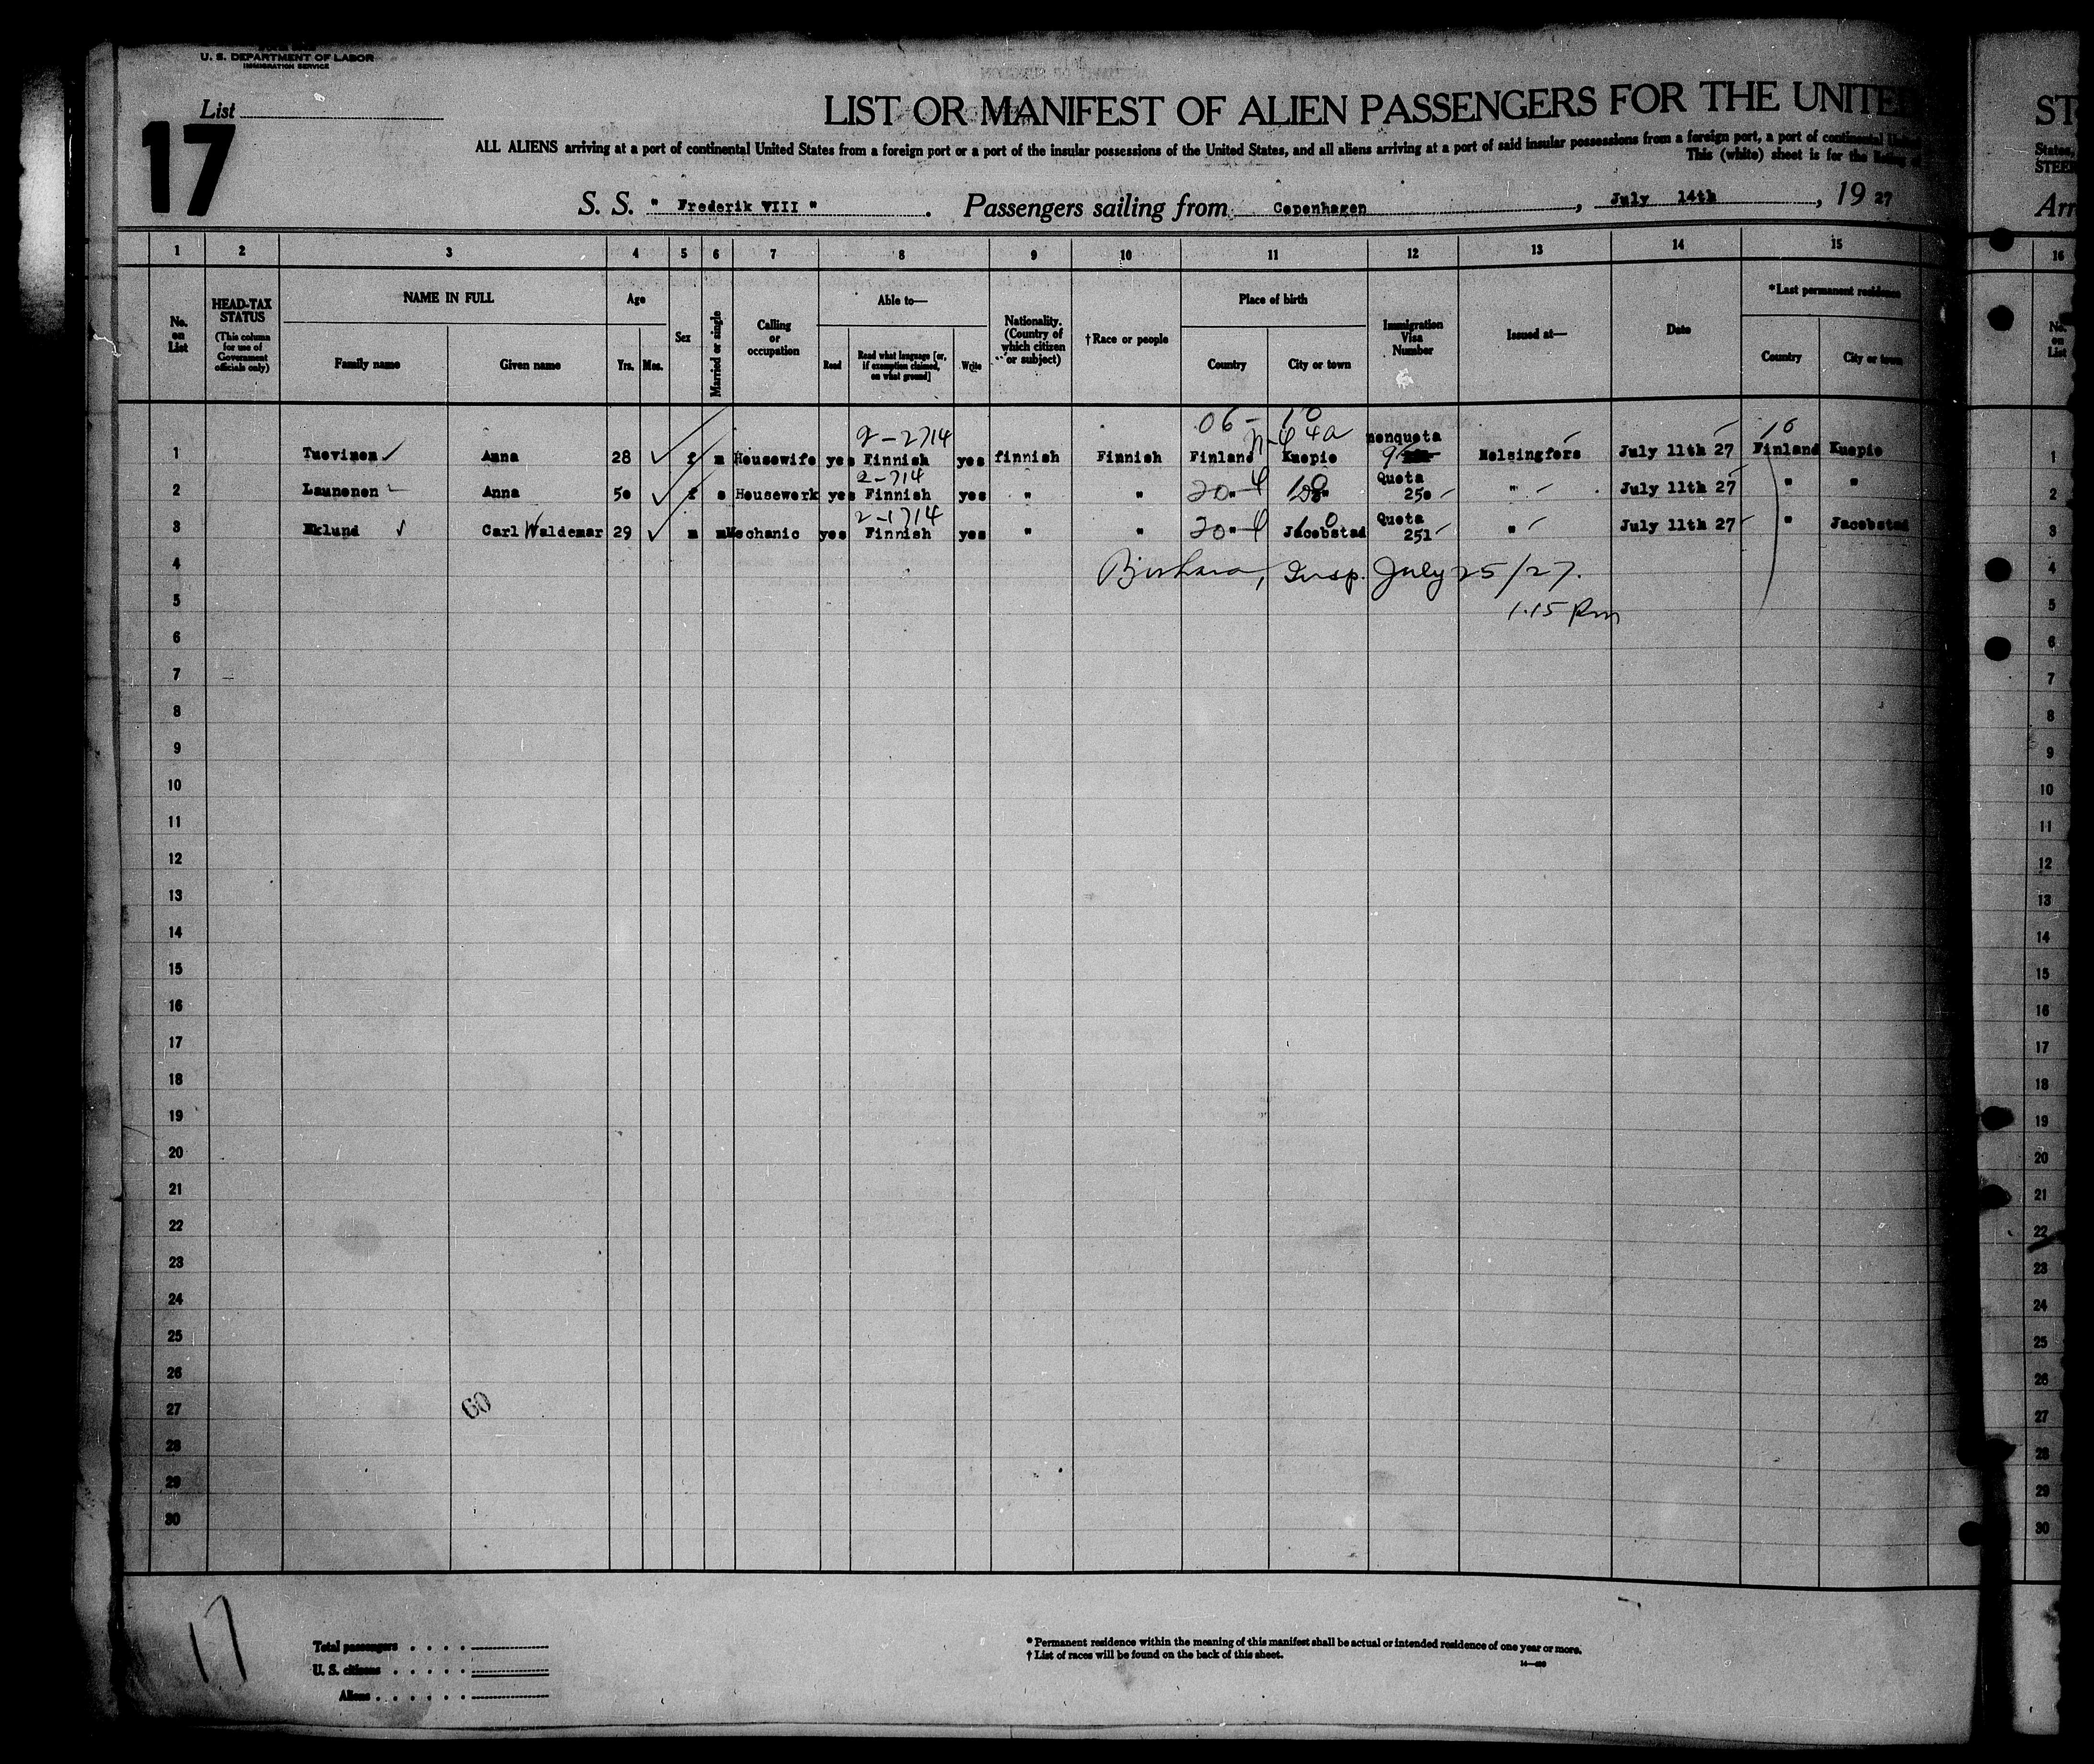 U. S. DEPARTMENT OF LABOR
IMMIGRATION SERVICE
List
17
LIST OR MANIFEST OF ALIEN PASSENGERS FOR THE UNITED
ALL ALIENS arriving at a port of continental United States from a foreign port or a port of the insular possessions of the United States, and all aliens arriving at a port of said insular possessions from a foreign port, a port of continental
This (white) sheet is for the listing
S. S. " Frederik VIII " . Passengers sailing from Copenhagen , July 14th , 19 27
ST
States,
STEE
Arr
1 2 3 4 5 6 7 8 9 10 11 12 13 14 15 16
No. on List
HEAD-TAX STATUS
(This column for use of Government officials only)
NAME IN FULL
Family name Given name
Age
Yrs. Mos.
Sex
Married or single
Calling or occupation
Able to—
Read
Read what language [or, if exemption claimed, on what ground]
Write
Nationality. (Country of which citizen or subject)
†Race or people
Place of birth
Country City or town
Immigration Visa Number
Issued at—
Date
*Last permanent residence
Country City or town
No. on List
06 - 10
2-2714 4a nonquota 10
1 Tuovinen Anna 28 f m Housewife yes Finnish yes finnish Finnish Finland Kuopio Helsingfors July 11th 27 Finland Kuopio 1
2-714 Quota
2 Launonen Anna 50 f s Housework yes Finnish yes " " 20 " 4 250 " July 11th 27 " " 2
2-1714 Quota
3 Eklund Carl Waldemar 29 m m Mechanic yes Finnish yes " " 20 " 4 Jacobstad 251 " July 11th 27 " Jacobstad 3
4 Insp. July 25/27. 4
5 1.15 Pm 5
6 6
7 7
8 8
9 9
10 10
11 11
12 12
13 13
14 14
15 15
16 16
17 17
18 18
19 19
20 20
21 21
22 22
23 23
24 24
25 25
26 26
27 60 27
28 28
29 29
30 30
17
Total passengers
U. S. citizens
Aliens
* Permanent residence within the meaning of this manifest shall be actual or intended residence of one year or more.
† List of races will be found on the back of this sheet.